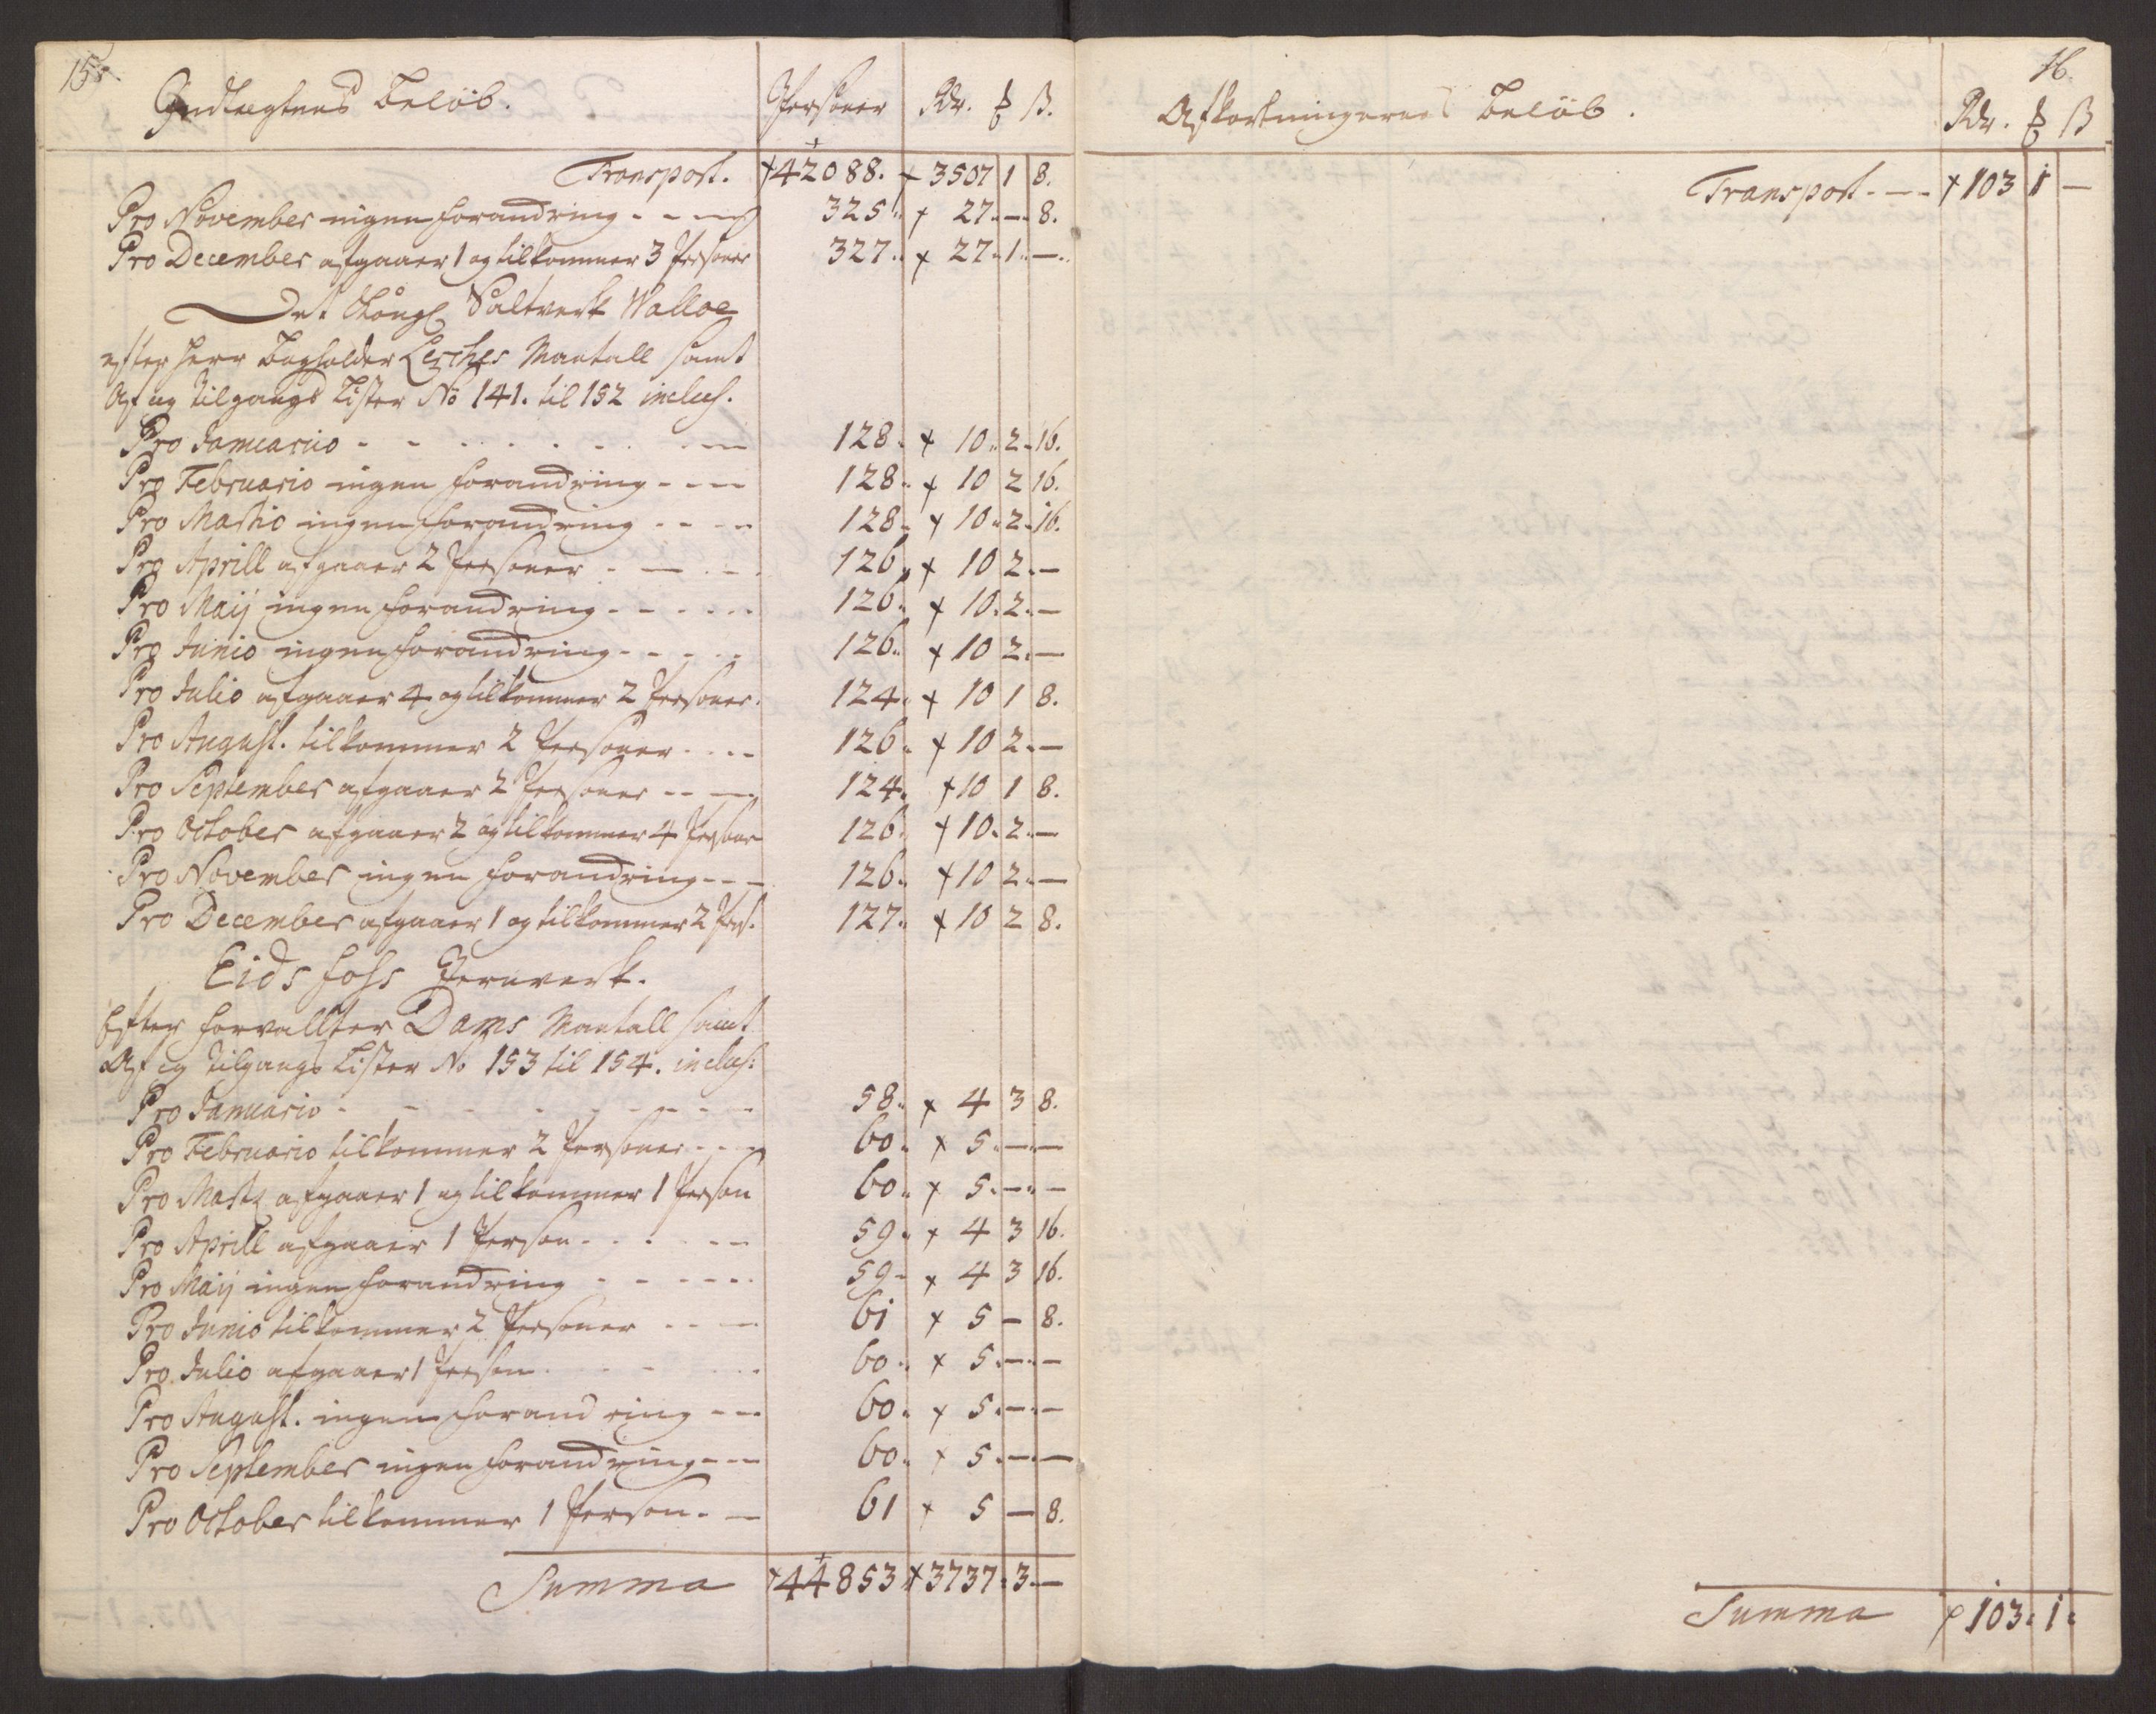 15.
Indtægtens Beløb. Personer Rdr. ₰ ß.
Transport. 42088. 3507 1 8.
Pro November ingen forandring - - - 325. 27. - 8.
Pro December afgaaer 1 og tilkommer 3 Personer 327. 27. 1. -
Det Kongl. Saltverk Walloe
efter Herr Bogholder Lesches Mantall samt
Af og tilgangs Lister No 141. til 152 inclus.
Pro Januario - - - - - - 128. 10. 2. 16.
Pro Februario ingen forandring - - - 128. 10 2 16.
Pro Martio ingen forandring - - - 128. 10. 2. 16.
Pro Aprill afgaaer 2 Personer - - - 126. 10 2. -
Pro Maij ingen forandring - - - - - 126. 10. 2. -
Pro Junio ingen forandring - - - - - 126. 10 2. -
Pro Julio afgaaer 4 og tilkommer 2 Personer. 124. 10 1 8.
Pro August. tilkommer 2 Personer - - - 126. 10 2. -
Pro September afgaaer 2 Personer - - - 124. 10 1 8.
Pro October afgaaer 2 og tilkommer 4 Person 126. 10. 2. -
Pro November ingen forandring - - - 126. 10 2. -
Pro December afgaaer 1 og tilkommer 2 Pers. 127. 10 2 8.
Eids foss Jernverk.
Efter forvallter Dams Mantall samt
Af og tilgangs Lister No 153 til 154. inclus:
Pro Januario - - - - - - - 58. 4 3 8.
Pro Februario tilkommer 2 Personer - - - 60. 5. - -
Pro Marti afgaaer 1 og tilkommer 1 Person 60. 5. - -
Pro Aprill afgaaer 1 Person - - - - - 59. 4 3 16.
Pro Maij ingen forandring - - - - - - 59 - 4 3 16.
Pro Junio tilkommer 2 Personer - - - 61 5 - 8.
Pro Julio afgaaer 1 Person - - - - 60. 5. - -
Pro August. ingen forandring - - - 60. 5. - -
Pro September ingen forandring - - - 60. 5. - -
Pro October tilkommer 1 Person. - 61 5 - 8.
Summa 44853 3737. 3. -
16.
Afkortningernes Beløb. Rdr. ₰ ß
Transport - - - 103 1 -
Summa 103. 1.